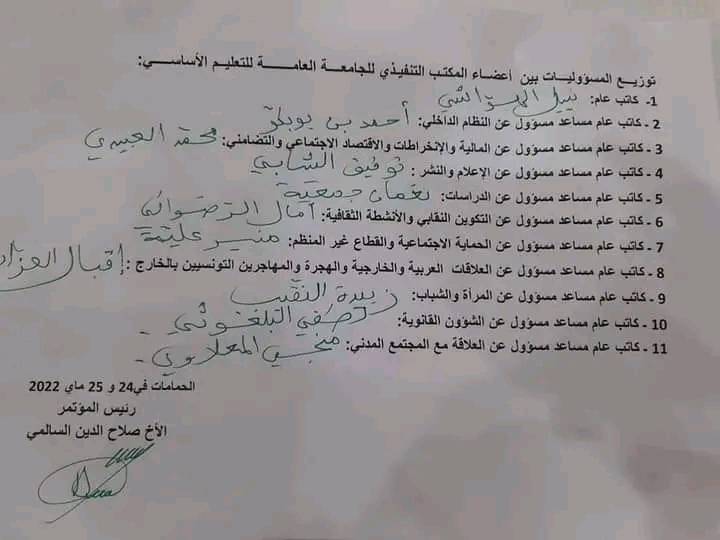 توزيع المسؤوليات بين أعضاء المكتب التنفيذي للجامعة العامة للتعليم الأساسي:
1- كاتب عام: نبيل الهواشي
2 - كاتب عام مساعد مسؤول عن النظام الداخلي: أحمد بن بوبكر
3 - كاتب عام مساعد مسؤول عن المالية والإنخراطات والاقتصاد الاجتماعي والتضامني: محمد العبيدي
4 - كاتب عام مساعد مسؤول عن الإعلام والنشر : توفيق الشابي
5 - كاتب عام مساعد مسؤول عن الدراسات: نعمان جمعية
6 - كاتب عام مساعد مسؤول عن التكوين النقابي والأنشطة الثقافية: آمال الرضواني
7 - كاتب عام مساعد مسؤول عن الحماية الاجتماعية والقطاع غير المنظم: منير عليمة
8 - كاتب عام مساعد مسؤول عن العلاقات العربية والخارجية والهجرة والمهاجرين التونسيين بالخارج : إقبال
9 - كاتب عام مساعد مسؤول عن المرأة والشباب: زبيدة النقيب
10 - كاتب عام مساعد مسؤول عن الشؤون القانوية:
11 - كاتب عام مساعد مسؤول عن العلاقة مع المجتمع المدني:
الحمامات في24 و 25 ماي 2022
رئيس المؤتمر
الأخ صلاح الدين السالمي